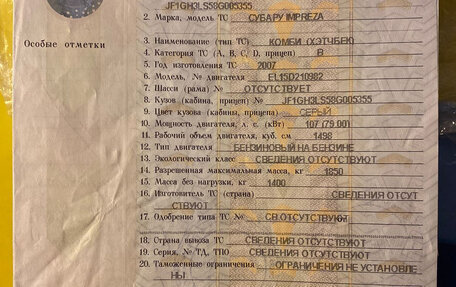 JF1GH3LS58G005355
2. Марка, модель ТС СУБАРУ IMPREZA
Особые отметки
3. Наименование (тип ТС) КОМБИ (ХЭТЧБЕК)
4. Категория ТС (А, В, С, D, прицеп) В
5. Год изготовления ТС 2007
6. Модель, № двигателя EL15D210982
7. Шасси (рама) № ОТСУТСТВУЕТ
8. Кузов (кабина, прицеп) № JF1GH3LS58G005355
9. Цвет кузова (кабины, прицепа) СЕРЫЙ
10. Мощность двигателя, л. с. (кВт) 107 (79.001
11. Рабочий объем двигателя, куб. см 1498
12. Тип двигателя БЕНЗИНОВЫЙ НА БЕНЗИНЕ
13. Экологический класс СВЕДЕНИЯ ОТСУТСТВУЮТ
14. Разрешенная максимальная масса, кг 1850
15. Масса без нагрузки, кг 1400
16. Изготовитель ТС (страна) СВЕДЕНИЯ ОТСУТ
СТВУЮТ
17. Одобрение типа ТС № СВ.ОТСУТСТВУЮТ
18. Страна вывоза ТС СВЕДЕНИЯ ОТСУТСТВУЮТ
19. Серия, № ТД, ТПО СВЕДЕНИЯ ОТСУТСТВУЮТ
20. Таможенные ограничения ОГРАНИЧЕНИЯ НЕ УСТАНОВЛЕ
НЫ